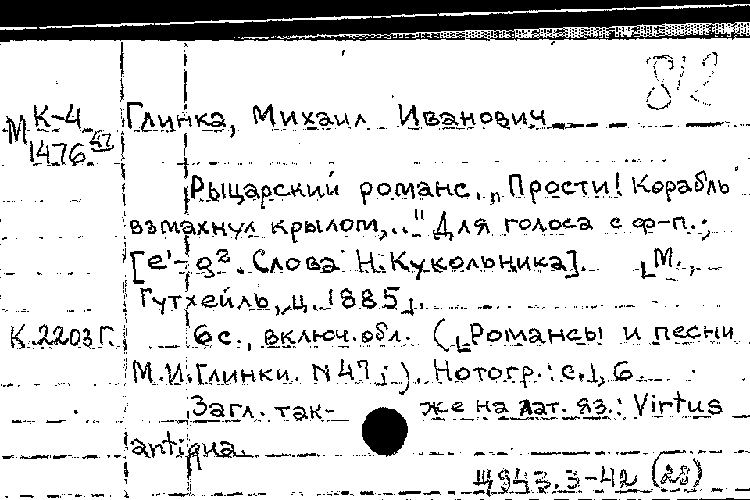 812
М К-4 Глинка, Михаил Иванович
1476 47
Рыцарский романс. „Прости! Корабль
взмахнул крылом,.." Для голоса с ф-п.;
[e'-g². Слова Н. Кукольника]. [М.,
Гутхейль, ц. 1885].
К.2203 Г. 6 с., включ. обл. ([Романсы и песни
М.И. Глинки. N 47;). Нотогр.: с. 1, 6.
Загл. так- же на лат. яз.: Virtus
antiqua.
Ц943.3-42 (28)